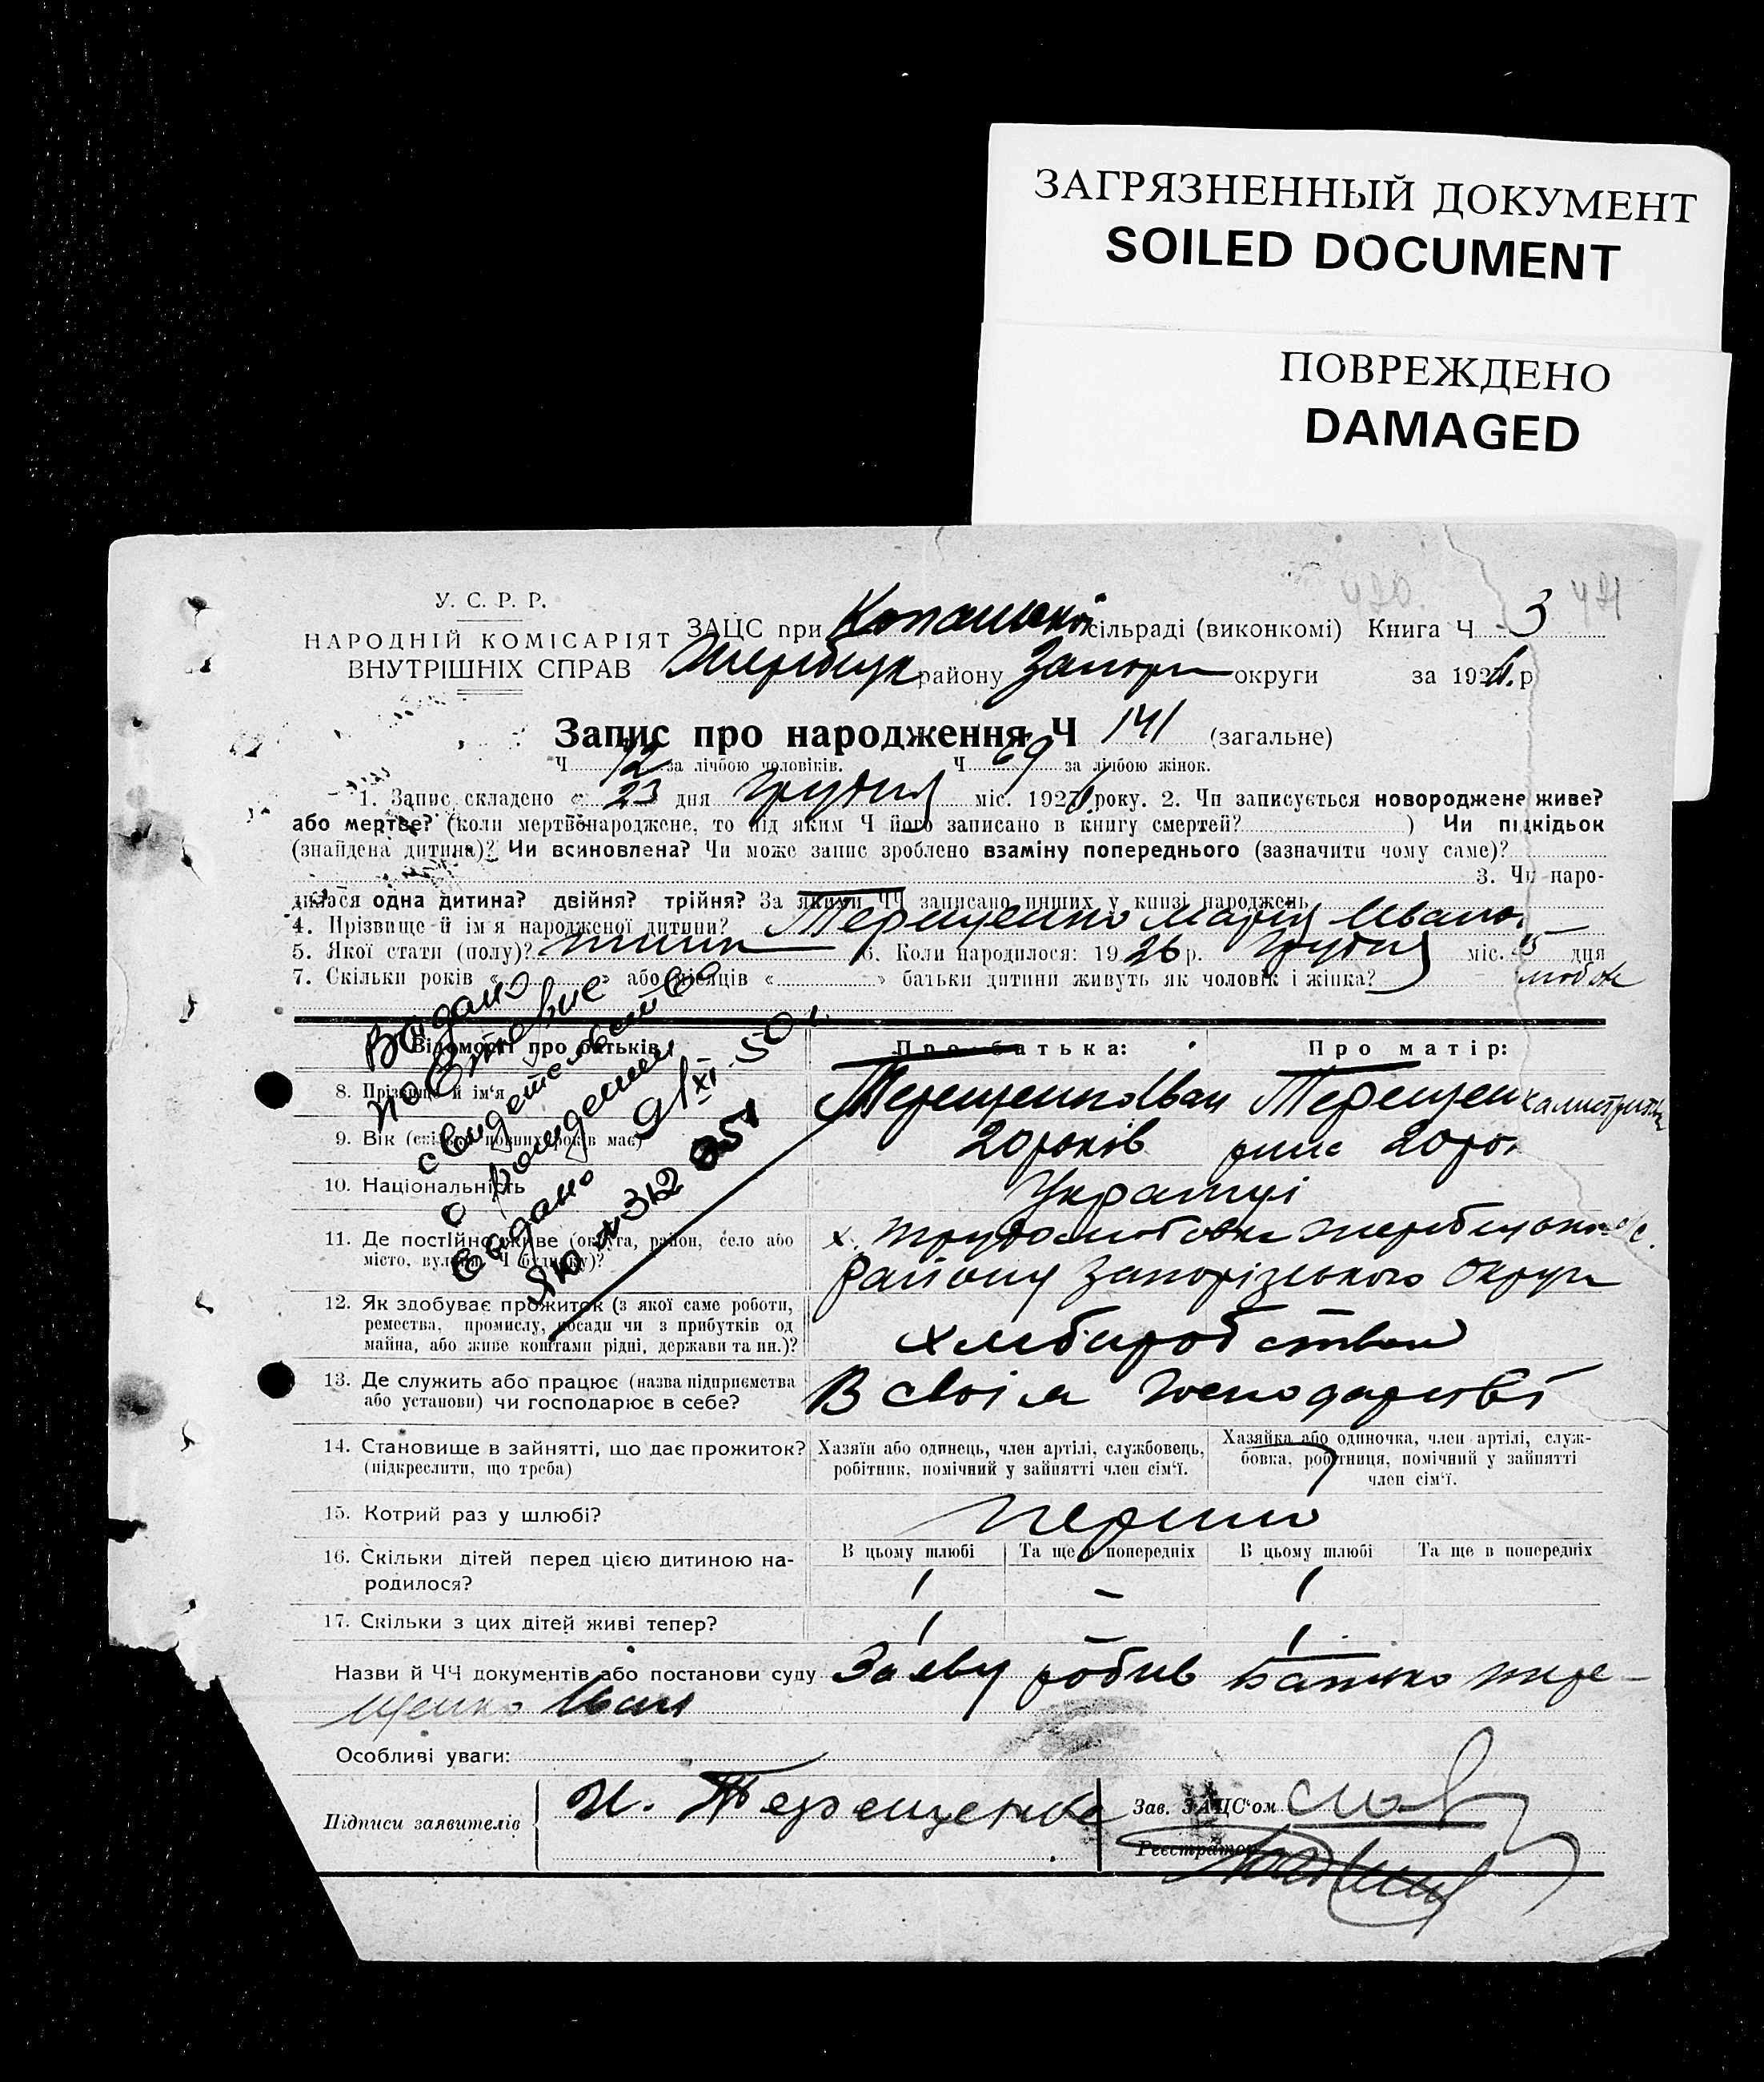 ЗАГРЯЗНЕННЫЙ ДОКУМЕНТ
SOILED DOCUMENT
ПОВРЕЖДЕНО
DAMAGED
420. 421
У. С. Р. Р.
НАРОДНІЙ КОМІСАРІЯТ
ВНУТРІШНІХ СПРАВ
ЗАЦС при сільраді (виконкомі) Книга Ч 3
району Запор округи за 192 р
Запис про народження Ч 141 (загальне)
Ч 72 за лічбою чоловіків. Ч 69 за лічбою жінок.
1. Запис складено « 23 дня Грудня міс. 192 року. 2. Чи записується новороджене живе?
або мертве? (коли мертвонароджене, то під яким Ч його записано в книгу смертей? ) Чи підкідьок
(знайдена дитина)? Чи всиновлена? Чи може запис зроблено взаміну попереднього (зазначити чому саме)?
3. Чи наро-
дилася одна дитина? двійня? трійня? За якими ЧЧ записано инших у книзі народжень
4. Прізвище й ім'я народженої дитини? Терещенко Марія Іван.
5. Якої стати (полу)? 6. Коли народилося: 1926 р. Грудня міс. 15 дня
7. Скільки років « » або місяців « » батьки дитини живуть як чоловік і жінка?
Видано
повторне
свидетельство
о рождении
9/XI-50 г.
видано
ЯЮ № 312 051
Відомості про батьків
Про батька: Про матір:
8. Прізвище й ім'я Терещенко Іван Терещен
9. Вік (скільки повних років має) 20 років 20 рок
10. Національність Українці
11. Де постійно живе (округа, район, село або
місто, вулиця, Ч будинку)?
х. Трудолюбовка
району Запорізького Округи
12. Як здобуває прожиток (з якої саме роботи,
ремества, промислу, посади чи з прибутків од
майна, або живе коштами рідні, держави та ин.)?
хліборобством
13. Де служить або працює (назва підприємства
або установи) чи господарює в себе?
В своім господарстві
14. Становище в зайнятті, що дає прожиток?
(підкреслити, що треба)
Хазяїн або одинець, член артілі, службовець,
робітник, помічний у зайнятті член сім'ї.
Хазяйка або одиночка, член артілі, служ-
бовка, робітниця, помічний у зайнятті
член сім'ї.
15. Котрий раз у шлюбі? перший
16. Скільки дітей перед цією дитиною на-
родилося?
В цьому шлюбі Та ще в попередніх В цьому шлюбі Та ще в попередніх
1 – 1
17. Скільки з цих дітей живі тепер? 1 – 1
Назви й ЧЧ документів або постанови суду Заяву робив Батько Тере-
щенко Іван
Особливі уваги:
Підписи заявителів И. Терещенко
Зав. ЗАЦС'ом
Реєстратор